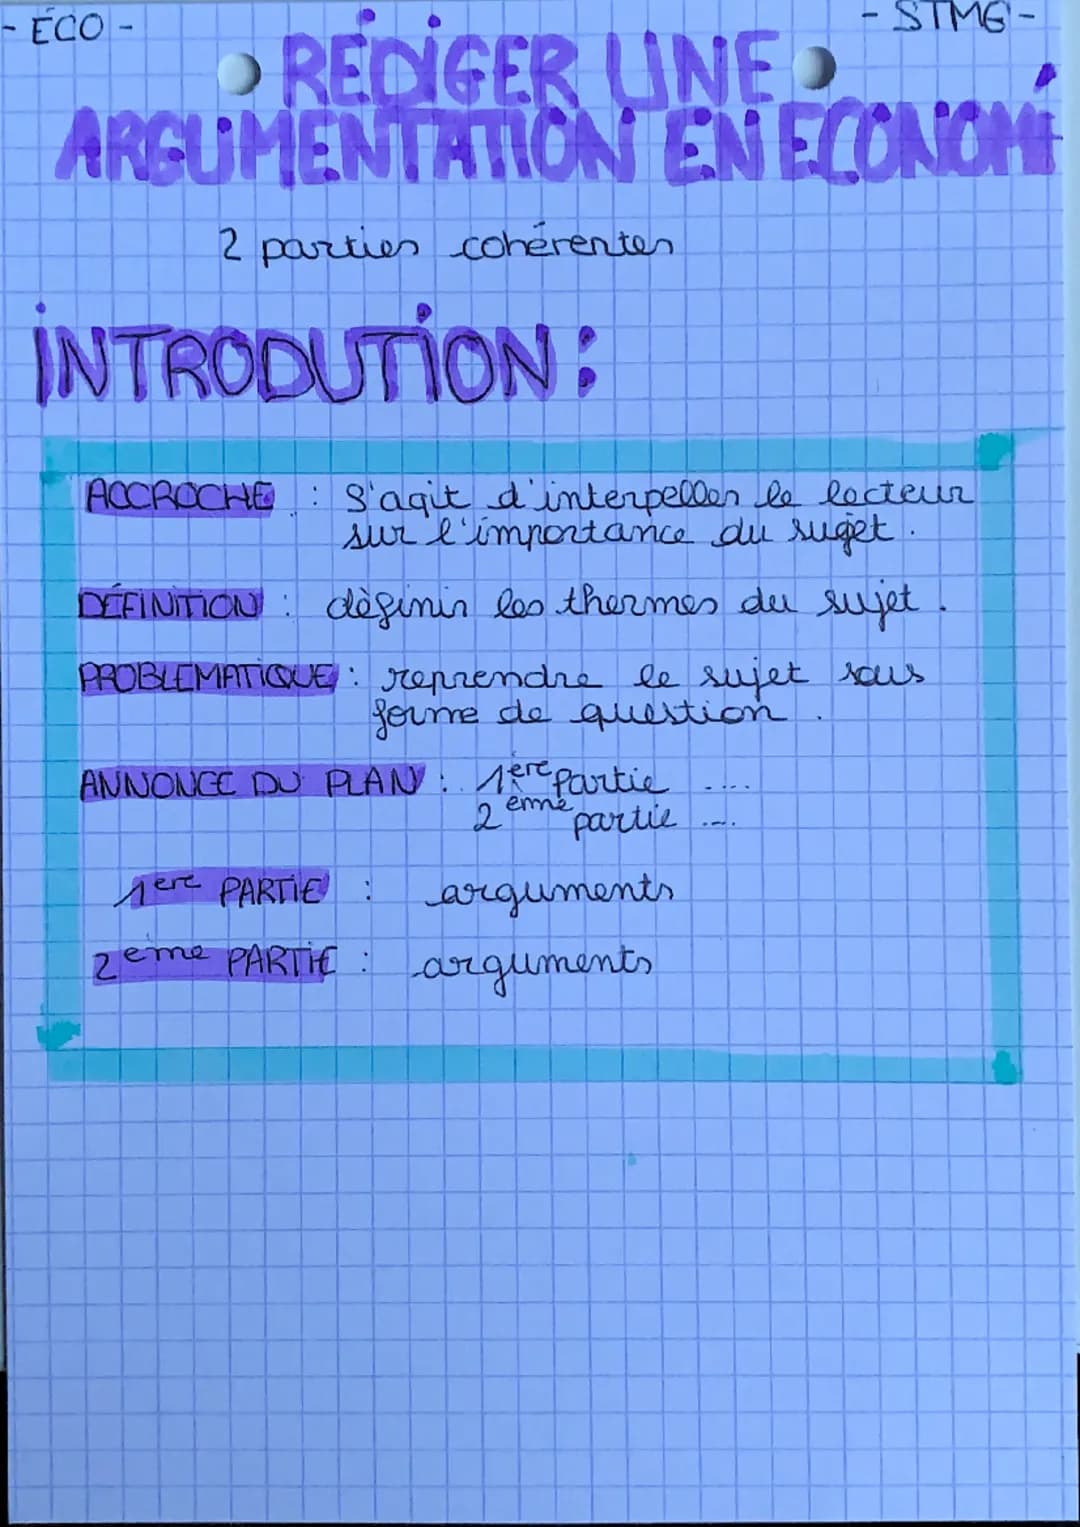 - ÉCO -
- STMG -
RÉDIGER UNE
ARGUMENTATION EN ÉCONOMI
2 parties cohérentes
INTRODUTION :
ACCROCHE : S'agit d'interpeller le lecteur
sur l'importance du sujet.
DÉFINITION : dèfinir les thermes du sujet.
PROBLEMATIQUE : reprendre le sujet sous
forme de question.
ANNONCE DU PLAN : 1ère partie ....
2ème partie ....
1ere PARTIE : arguments
2eme PARTIE : arguments